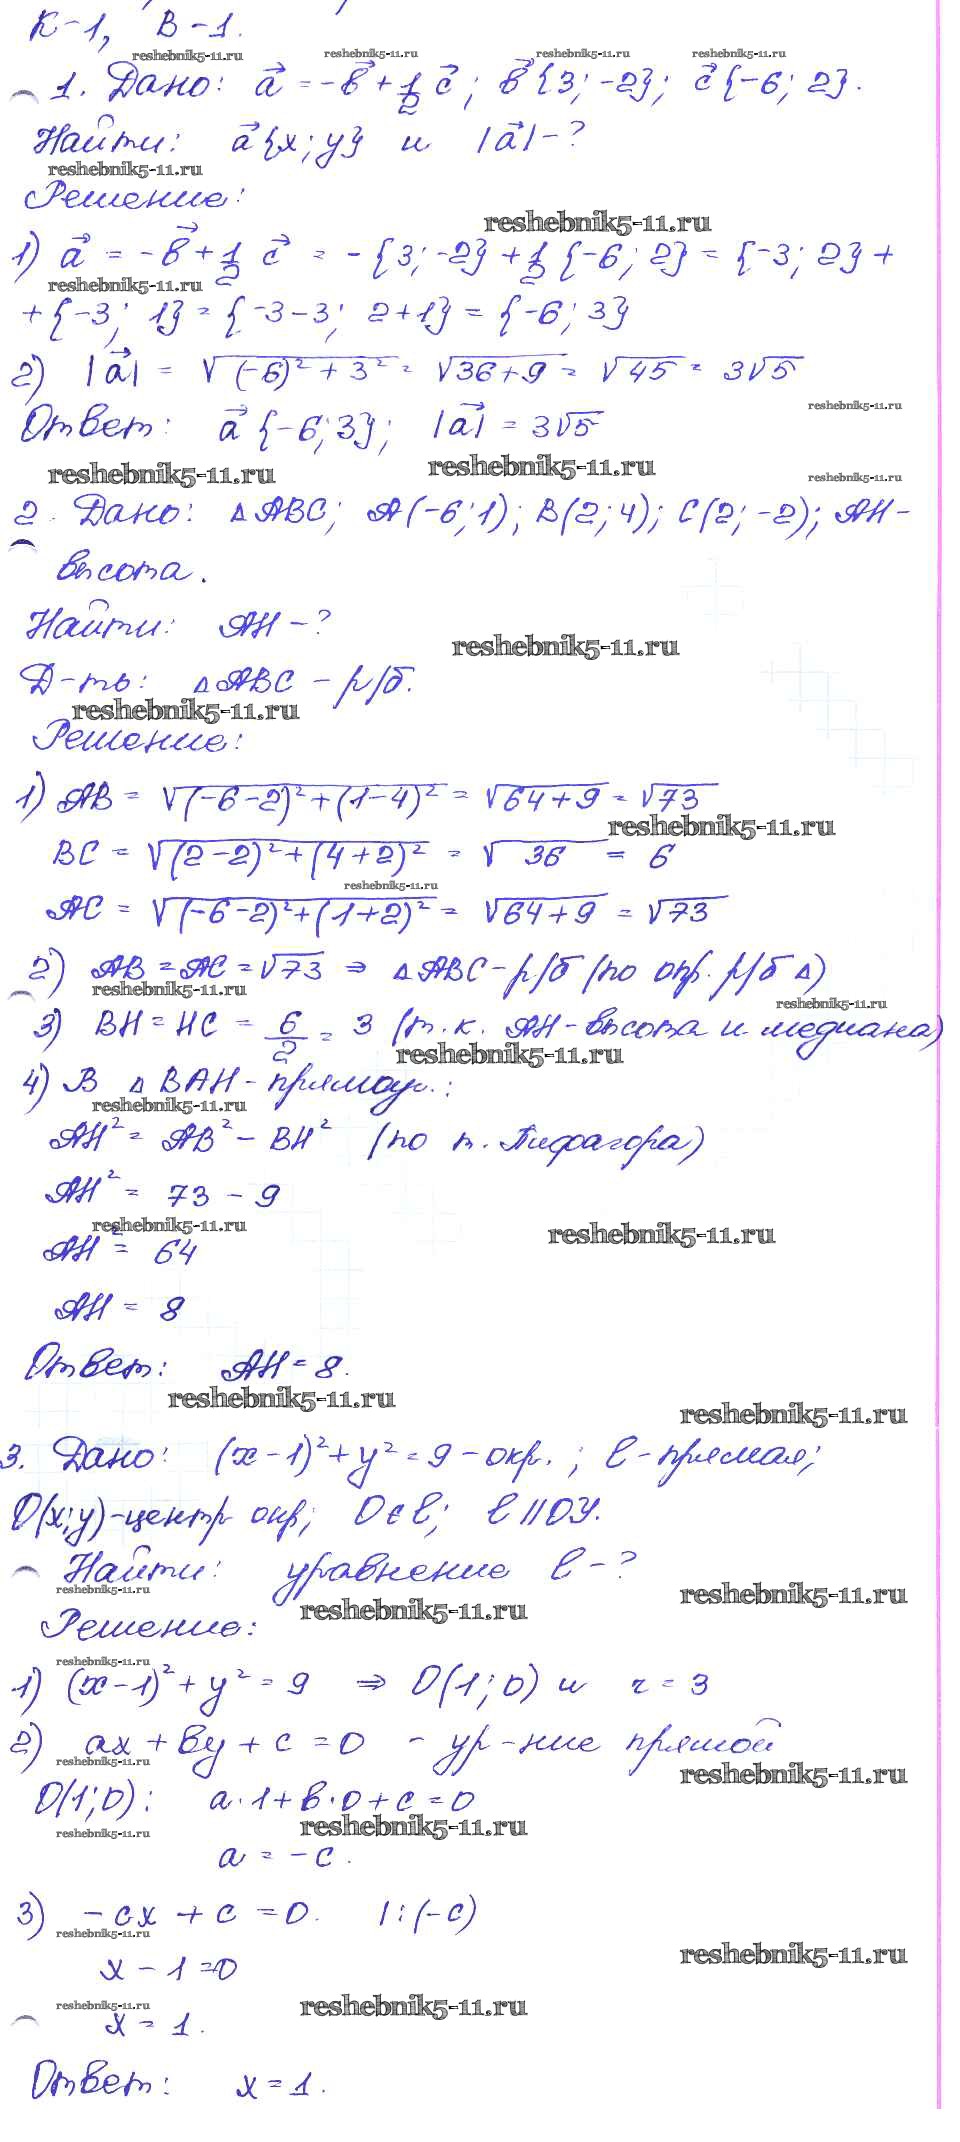 К-1, В-1.
reshebnik5-11.ru reshebnik5-11.ru reshebnik5-11.ru reshebnik5-11.ru
1. Дано: a⃗ = -b⃗ + 1/2 c⃗; b⃗{3; -2}; c⃗{-6; 2}.
Найти: a⃗{x; y} и |a⃗| - ?
reshebnik5-11.ru
Решение:
reshebnik5-11.ru
1) a⃗ = -b⃗ + 1/2 c⃗ = -{3; -2} + 1/2 {-6; 2} = {-3; 2} +
reshebnik5-11.ru
+ {-3; 1} = {-3-3; 2+1} = {-6; 3}
2) |a⃗| = √((-6)² + 3²) = √(36+9) = √45 = 3√5
reshebnik5-11.ru
Ответ: a⃗ {-6; 3}; |a⃗| = 3√5
reshebnik5-11.ru reshebnik5-11.ru reshebnik5-11.ru
2. Дано: △ABC; A(-6; 1); B(2; 4); C(2; -2); AH-
высота.
Найти: AH - ?
reshebnik5-11.ru
Д-ть: △ABC - р/б.
reshebnik5-11.ru
Решение:
1) AB = √((-6-2)² + (1-4)²) = √(64+9) = √73
reshebnik5-11.ru
BC = √((2-2)² + (4+2)²) = √36 = 6
reshebnik5-11.ru
AC = √((-6-2)² + (1+2)²) = √(64+9) = √73
2) AB = AC = √73 ⇒ △ABC - р/б (по опр. р/б △)
reshebnik5-11.ru reshebnik5-11.ru
3) BH = HC = 6/2 = 3 (т.к. AH - высота и медиана)
reshebnik5-11.ru
4) В △BAH - прямоуг.:
reshebnik5-11.ru
AH² = AB² - BH² (по т. Пифагора)
AH² = 73 - 9
reshebnik5-11.ru reshebnik5-11.ru
AH² = 64
AH = 8
Ответ: AH = 8.
reshebnik5-11.ru reshebnik5-11.ru
3. Дано: (x-1)² + y² = 9 - окр.; l - прямая;
O(x; y) - центр окр; O ∈ l; l || OY.
Найти: уравнение l - ?
reshebnik5-11.ru reshebnik5-11.ru reshebnik5-11.ru
Решение:
reshebnik5-11.ru
1) (x-1)² + y² = 9 ⇒ O(1; 0) и r = 3
2) ax + by + c = 0 - ур-ние прямой
reshebnik5-11.ru reshebnik5-11.ru
O(1; 0): a·1 + b·0 + c = 0
reshebnik5-11.ru reshebnik5-11.ru
a = -c.
3) -cx + c = 0. |:(-c)
reshebnik5-11.ru reshebnik5-11.ru
x - 1 = 0
reshebnik5-11.ru reshebnik5-11.ru
x = 1.
Ответ: x = 1.